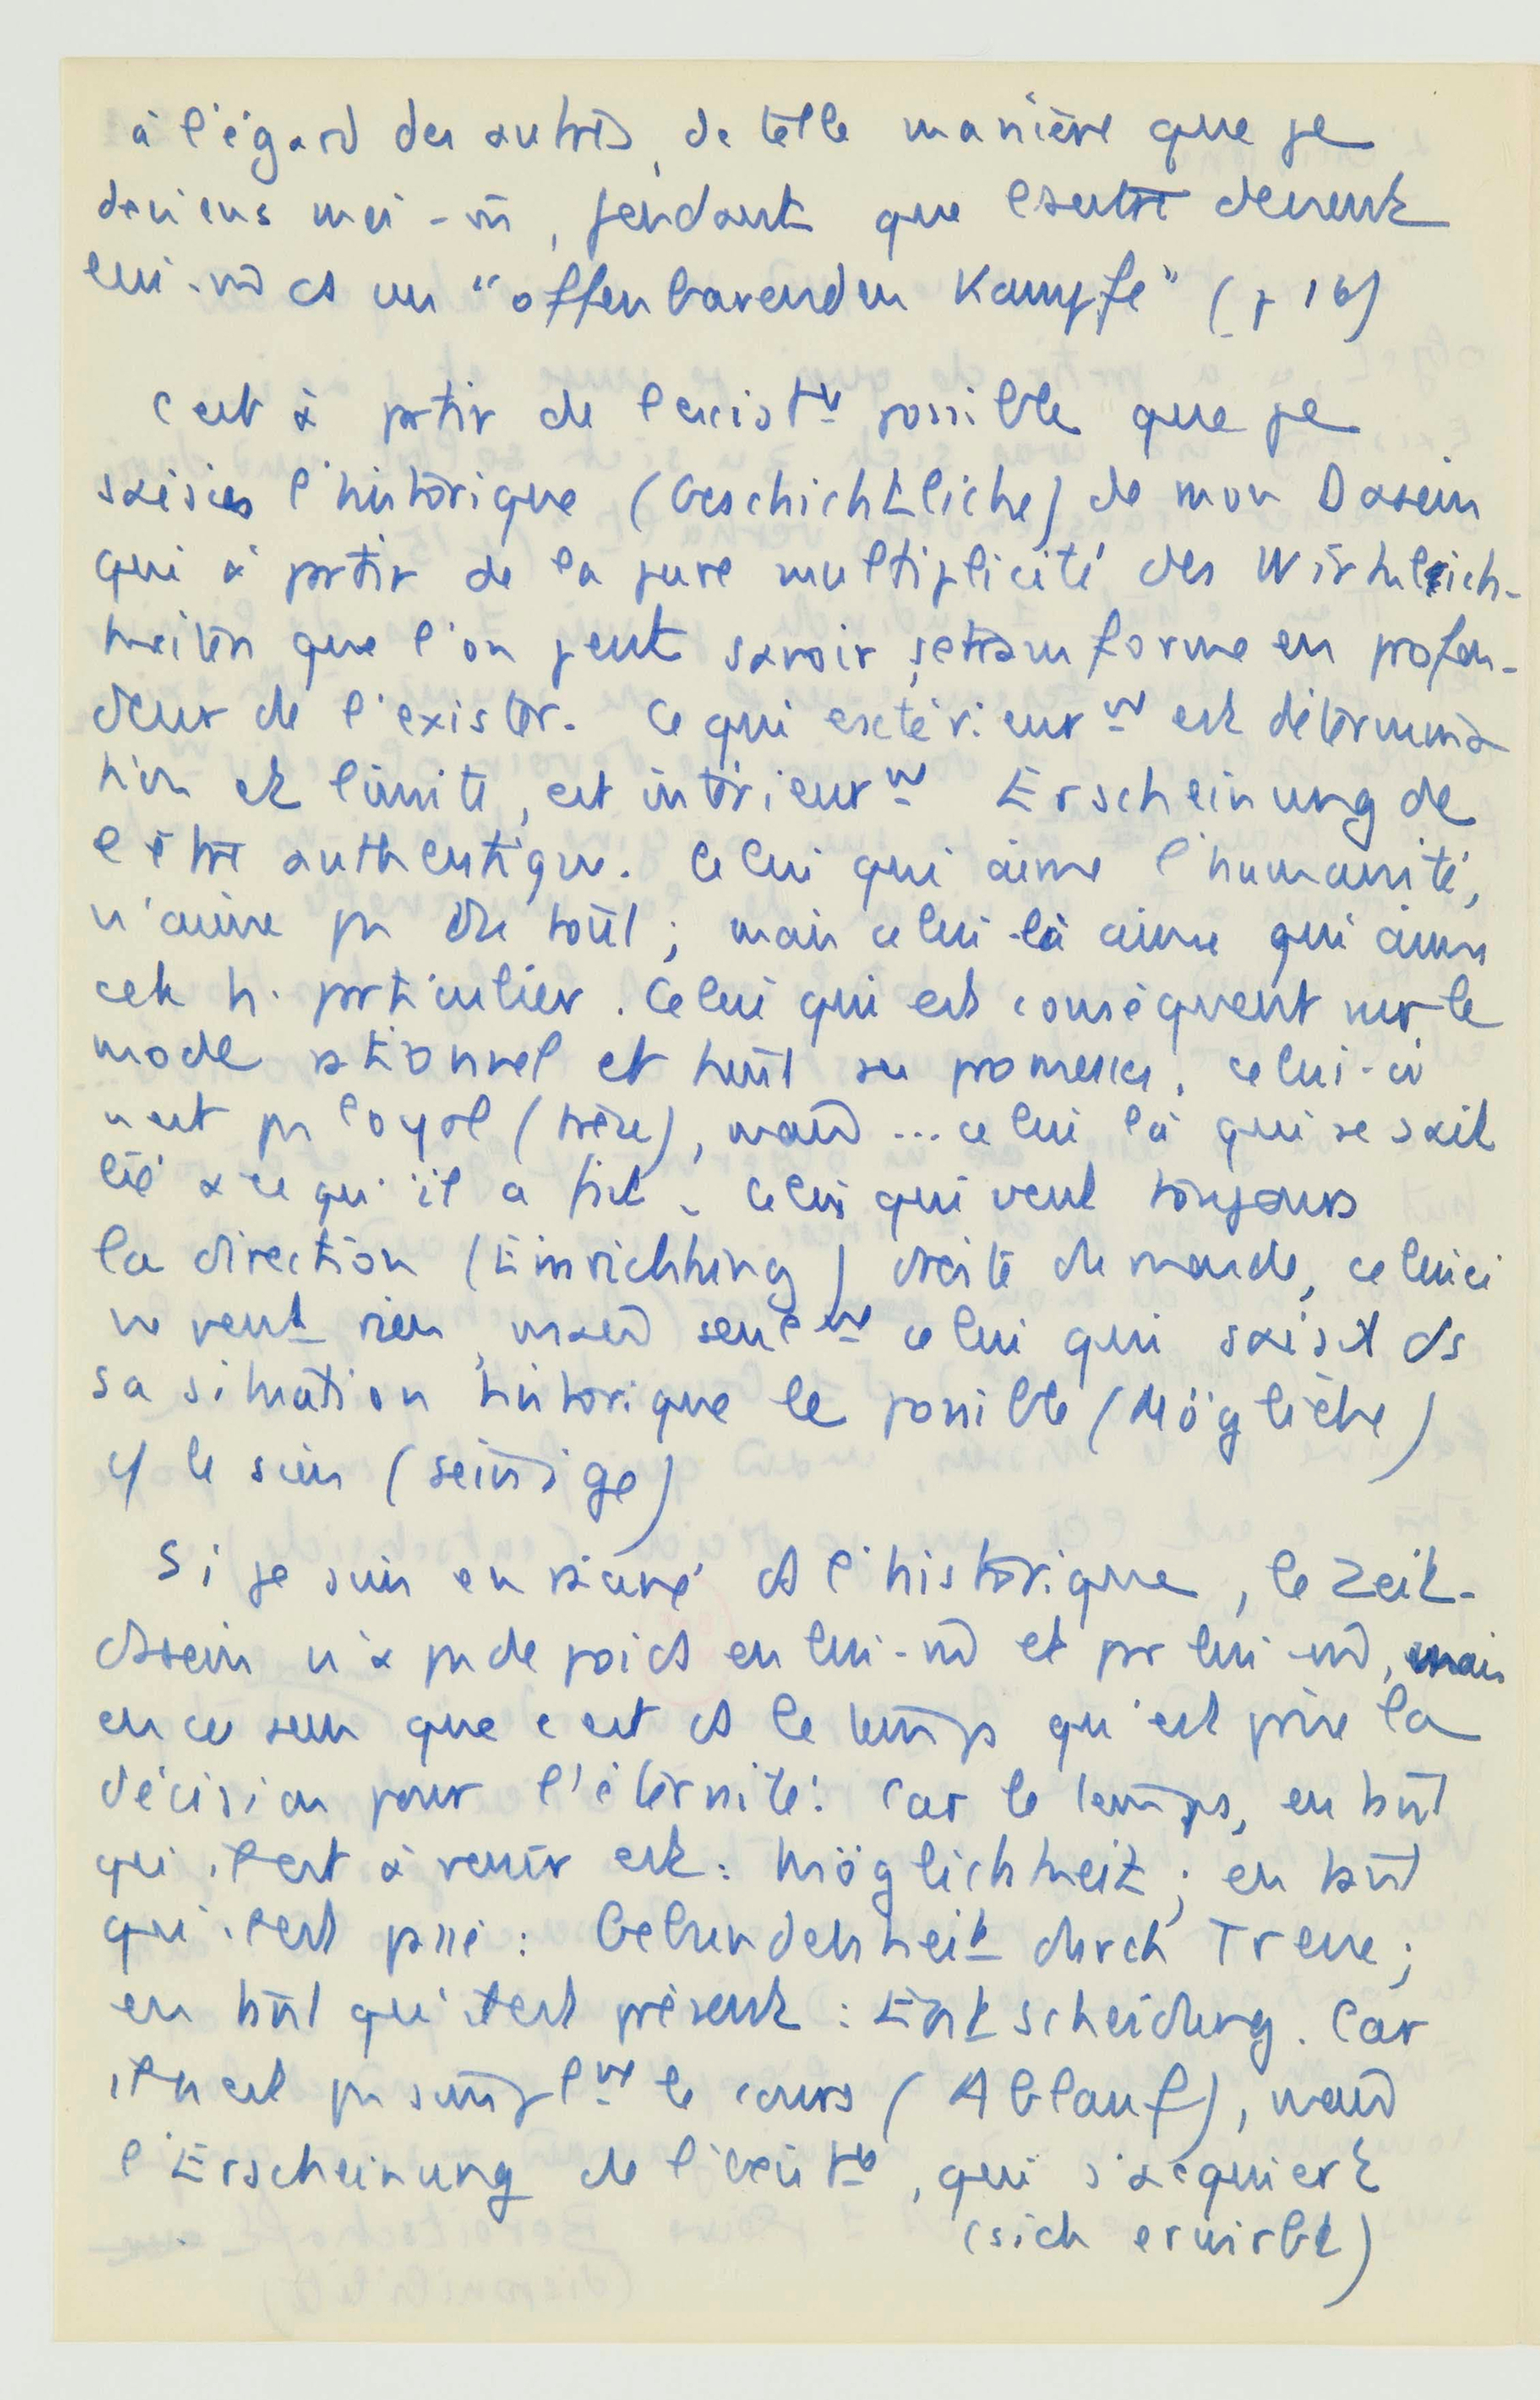 à l'égard des autres, de telle manière que je
deviens moi-m̄, pendant que l'autre devient
lui-m̄ ds un "offenbarenden Kampfe" (p 16)
C'est à partir de l'existce possible que je
saisis l'historique (Geschichtliche) de mon Dasein
qui à partir de la pure multiplicité des Wirklich-
keiten que l'on peut savoir se transforme en profon-
deur de l'exister. Ce qui extérieurmt est détermina
tion et limite, est intérieurmt Erscheinung de
l'être authentique. Celui qui aime l'humanité,
n'aime pas du tout ; mais celui-là aime qui aime
cet h. particulier. Celui qui est conséquent sur le
mode rationnel et tient ses promesses, celui-ci
n'est pas loyal (treu), mais ... celui là qui se sait
lié à ce qu'il a fait. Celui qui veut toujours
la direction (Einrichtung) droite du monde, celui ci
ne veut rien, mais seulemt celui qui saisit ds
sa situation historique le possible (Mögliche)
c/ le sien (seinige)
Si je suis enraciné ds l'historique, le Zeit-
dasein n'a pas de poids en lui-m̄ et pr lui-m̄, mais
en ce sens que c'est ds le temps qu'est prise la
décision pour l'éternité. Car le temps, en tant
qu'il est à venir est : Möglichkeit ; en tant
qu'il est passé : Gebundenheit durch Treue ;
en tant qu'il est présent : Entscheidung. Car
il n'est pas simplemt le cours (Ablauf), mais
l'Erscheinung de l'existce, qui s'acquiert
(sich erwirbt)